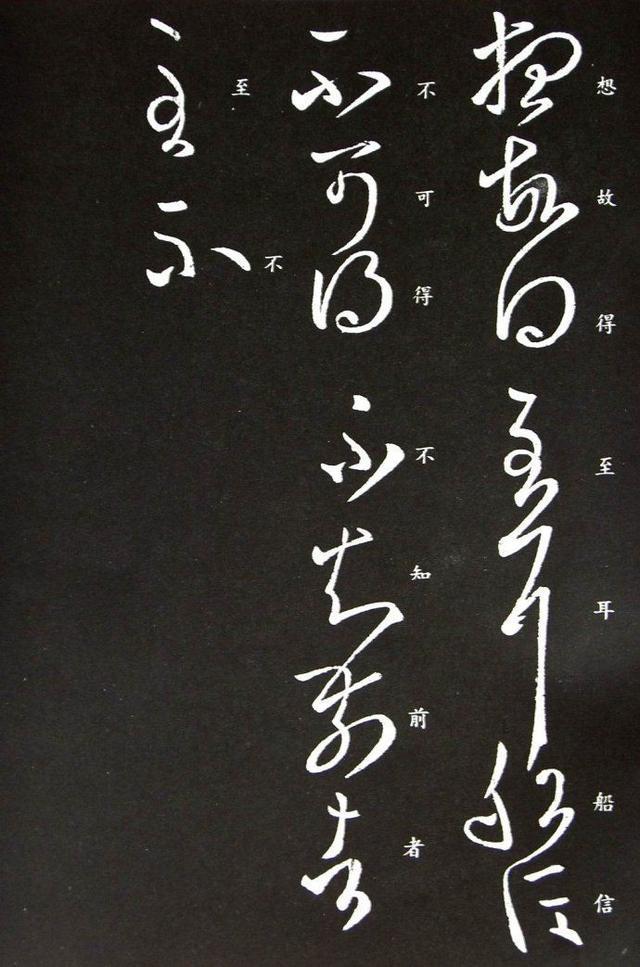 想故得至耳船信
不可得不知前者
至不